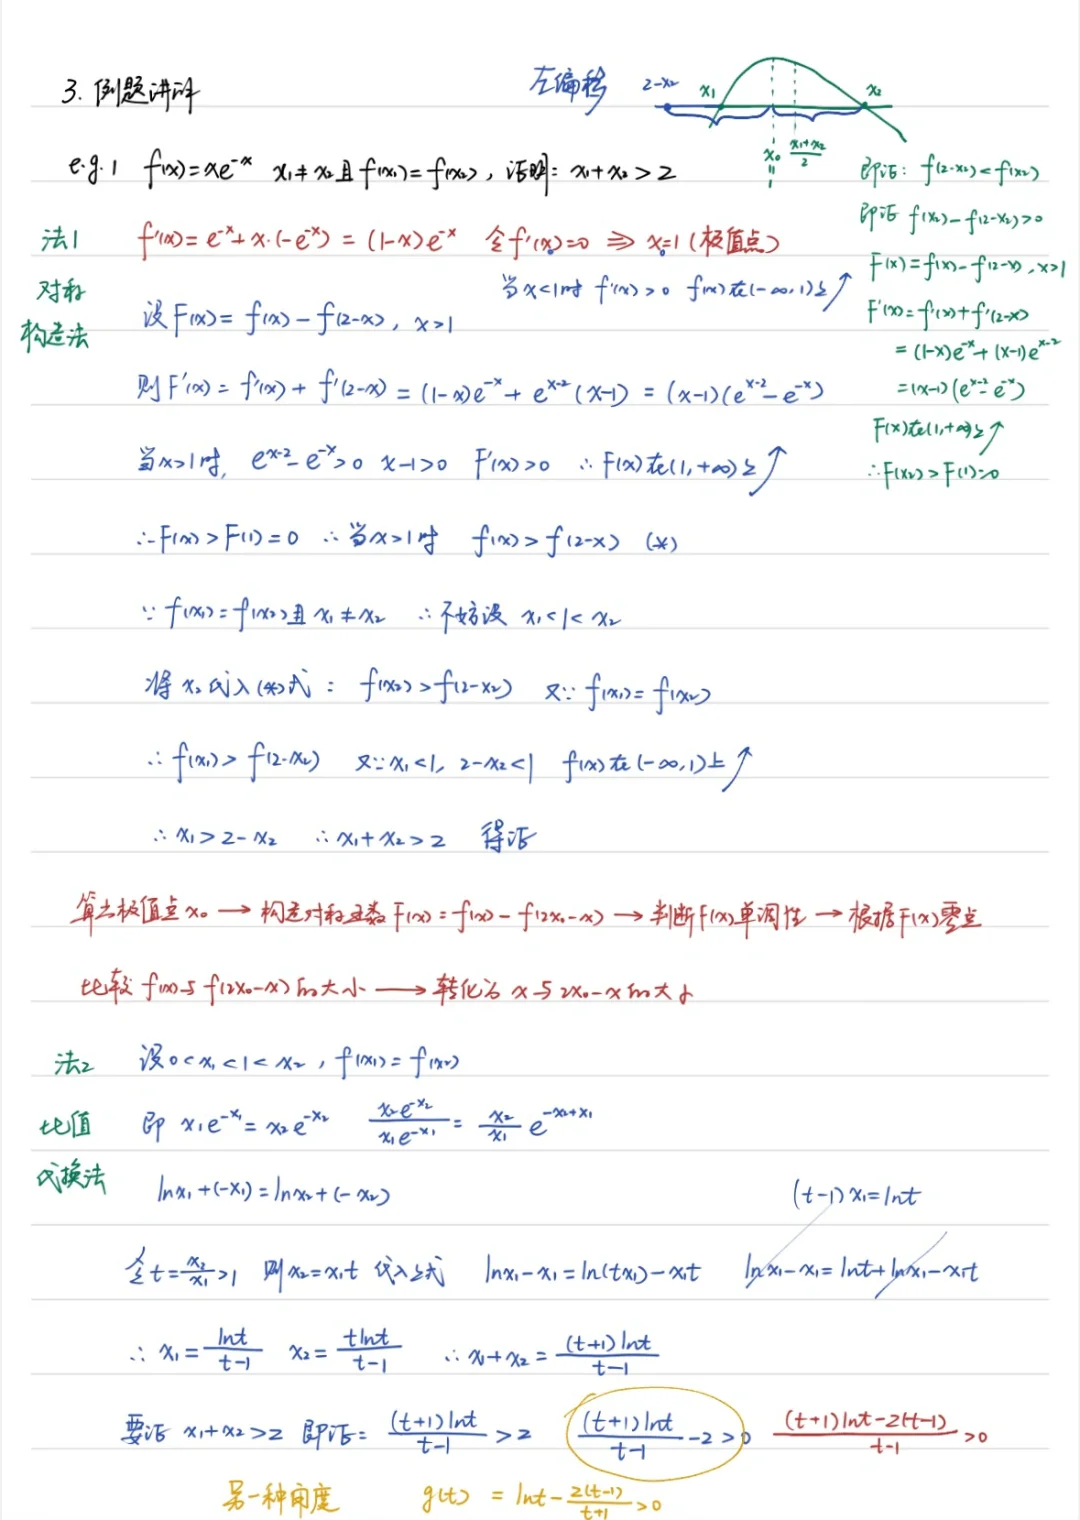 3. 例题讲解
左偏移 2-x₂ x₁ x₂
x₀ (x₁+x₂)/2
e.g.1 f(x)=xe^{-x} x₁≠x₂且f(x₁)=f(x₂), 证明: x₁+x₂>2
即证: f(2-x₂)<f(x₂)
即证 f(x₂)-f(2-x₂)>0
F(x)=f(x)-f(2-x), x>1
F'(x)=f'(x)+f'(2-x)
=(1-x)e^{-x}+(x-1)e^{x-2}
=(x-1)(e^{x-2}-e^{-x})
F(x)在(1,+∞)上↗
∴F(x₂)>F(1)=0
法1 f'(x)=e^{-x}+x·(-e^{-x})=(1-x)e^{-x} 令f'(x)=0 ⇒ x=1(极值点)
对称
构造法
当x<1时 f'(x)>0 f(x)在(-∞,1)上↗
设F(x)=f(x)-f(2-x), x>1
则F'(x)=f'(x)+f'(2-x)=(1-x)e^{-x}+e^{x-2}(x-1)=(x-1)(e^{x-2}-e^{-x})
当x>1时, e^{x-2}-e^{-x}>0 x-1>0 F'(x)>0 ∴F(x)在(1,+∞)上↗
∴F(x)>F(1)=0 ∴当x>1时 f(x)>f(2-x) (*)
∵f(x₁)=f(x₂)且x₁≠x₂ ∴不妨设 x₁<1<x₂
将x₂代入(*)式: f(x₂)>f(2-x₂) 又∵f(x₁)=f(x₂)
∴f(x₁)>f(2-x₂) 又∵x₁<1, 2-x₂<1 f(x)在(-∞,1)上↗
∴x₁>2-x₂ ∴x₁+x₂>2 得证
算出极值点x₀→构造对称函数F(x)=f(x)-f(2x₀-x)→判断F(x)单调性→根据F(x)零点
比较f(x)与f(2x₀-x)的大小→转化为x与2x₀-x的大小
法2 设0<x₁<1<x₂, f(x₁)=f(x₂)
比值
代换法
即 x₁e^{-x₁}=x₂e^{-x₂} (x₂e^{-x₂})/(x₁e^{-x₁})=(x₂/x₁)e^{-x₂+x₁}
lnx₁+(-x₁)=lnx₂+(-x₂) (t-1)x₁=lnt
令t=x₂/x₁>1 则x₂=x₁t 代入上式 lnx₁-x₁=ln(tx₁)-x₁t lnx₁-x₁=lnt+lnx₁-x₁t
∴x₁=lnt/(t-1) x₂=tlnt/(t-1) ∴x₁+x₂=(t+1)lnt/(t-1)
要证x₁+x₂>2 即证: (t+1)lnt/(t-1)>2 (t+1)lnt/(t-1)-2>0 ((t+1)lnt-2(t-1))/(t-1)>0
另一种角度 g(t)=lnt-2(t-1)/(t+1)>0